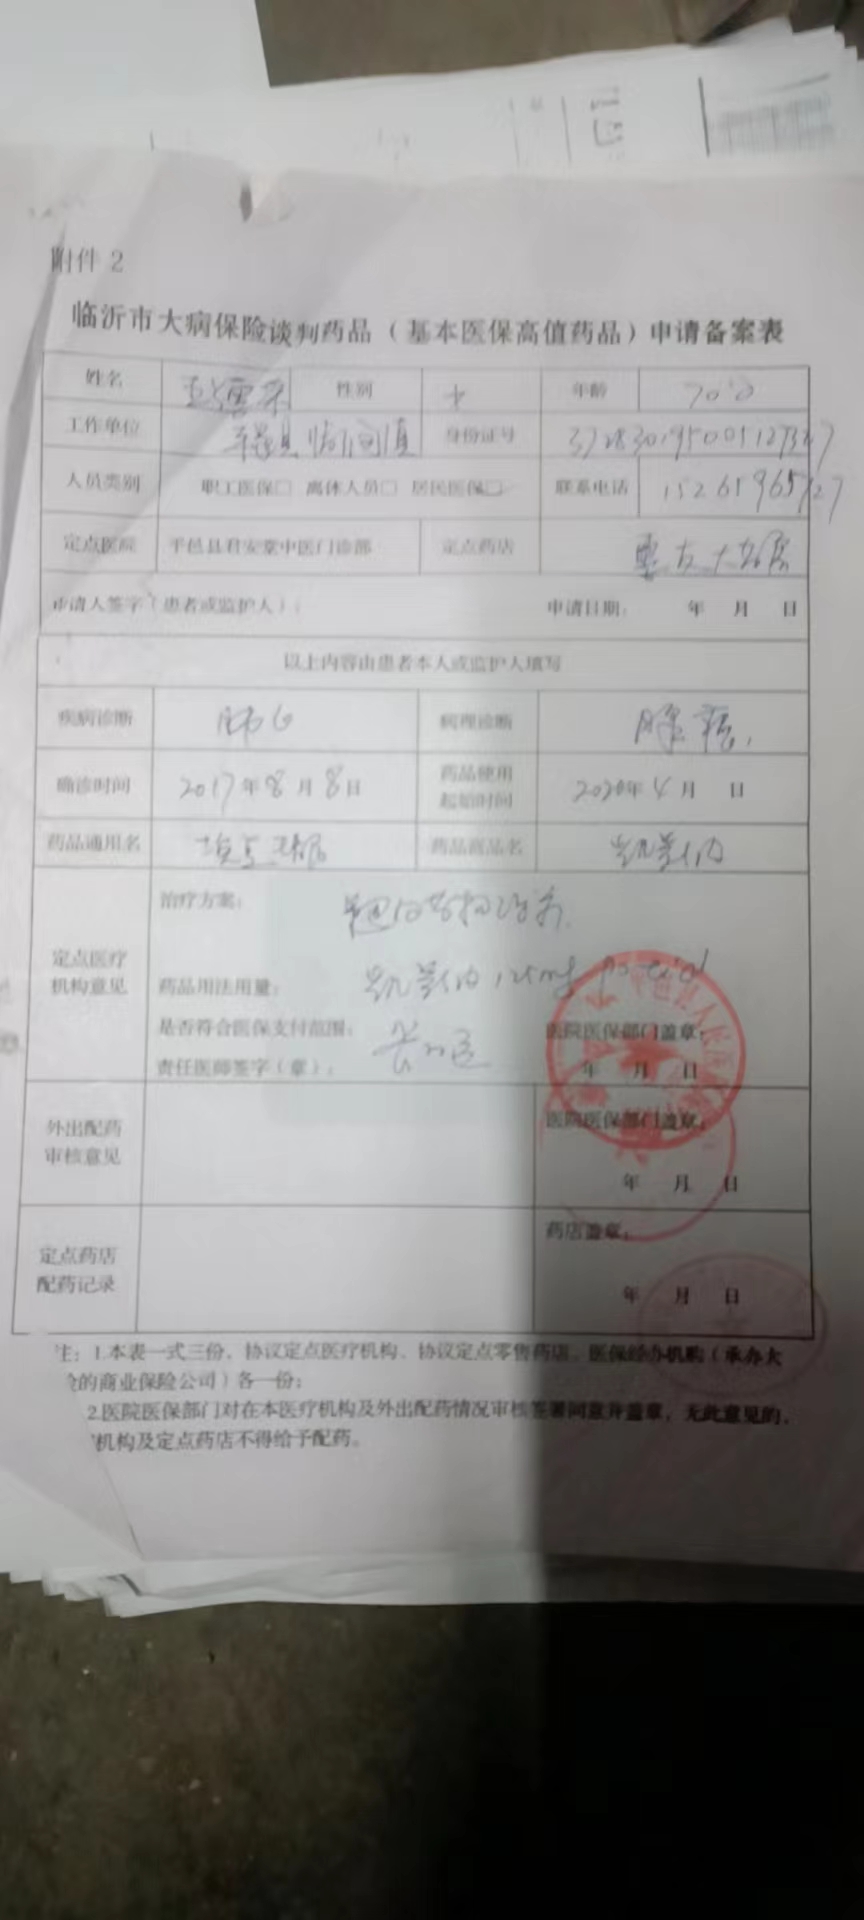 附件 2
临沂市大病保险谈判药品（基本医保高值药品）申请备案表
姓名 性别 女 年龄 70岁
工作单位 平邑县临涧镇 身份证号
人员类别 职工医保□ 离休人员□ 居民医保□ 联系电话
定点医院 平邑县君安堂中医门诊部 定点药店 大药房
申请人签字（患者或监护人）： 申请日期： 年 月 日
以上内容由患者本人或监护人填写
疾病诊断 肺Ca 病理诊断 腺癌
确诊时间 2017年8月8日 药品使用起始时间 2020年4月 日
药品通用名 埃克替尼 药品商品名 凯美纳
定点医疗机构意见
治疗方案： 靶向药物治疗
药品用法用量： 凯美纳 125mg po tid
是否符合医保支付范围：
责任医师签字（章）：
医院医保部门盖章：
年 月 日
外出配药审核意见
医院医保部门盖章：
年 月 日
定点药店配药记录
药店盖章：
年 月 日
注：1.本表一式三份，协议定点医疗机构、协议定点零售药店、医保经办机构（承办大
的商业保险公司）各一份；
2.医院医保部门对在本医疗机构及外出配药情况审核签署同意并盖章，无此意见的，
机构及定点药店不得给予配药。